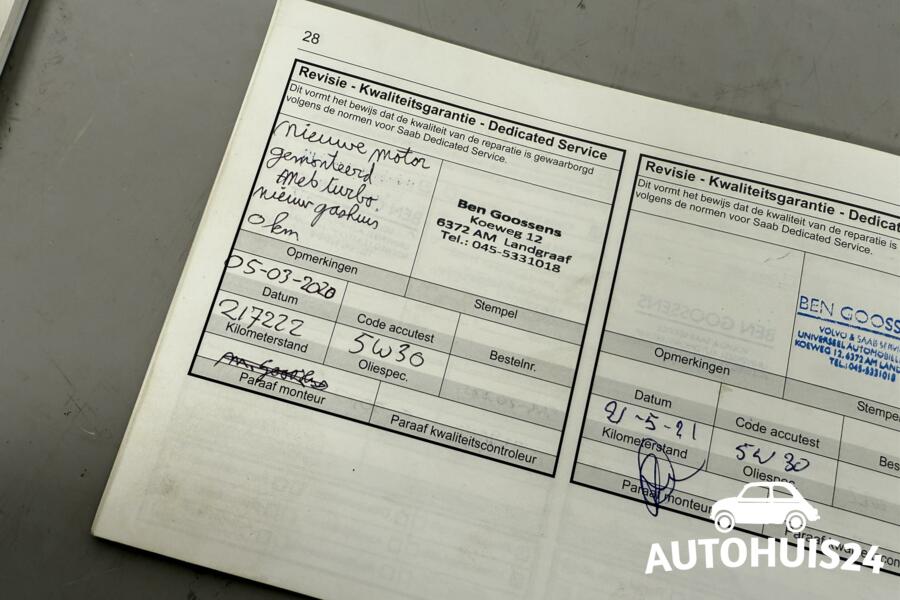 28
Revisie - Kwaliteitsgarantie - Dedicated Service
Dit vormt het bewijs dat de kwaliteit van de reparatie is gewaarborgd
volgens de normen voor Saab Dedicated Service.
nieuwe motor
gemonteerd
met turbo.
nieuw gashuis
0 km
Ben Goossens
Koeweg 12
6372 AM Landgraaf
Tel.: 045-5331018
Opmerkingen
Stempel
05-03-2020
Datum
Code accutest
Bestelnr.
217222
5W30
Kilometerstand
Oliespec.
Paraaf monteur
Paraaf kwaliteitscontroleur
Revisie - Kwaliteitsgarantie - Dedicat
Dit vormt het bewijs dat de kwaliteit van de reparatie is
volgens de normen voor Saab Dedicated Service.
BEN GOOSS
VOLVO & SAAB SERVI
UNIVERSEEL AUTOMOBIEL
KOEWEG 12, 6372 AM LAND
TEL.: 045-5331018
Opmerkingen
Stempe
Datum
Code accutest
Bes
21-5-21
5W30
Kilometerstand
Oliespec.
Paraaf monteur
Paraaf kwaliteitscon
AUTOHUIS24